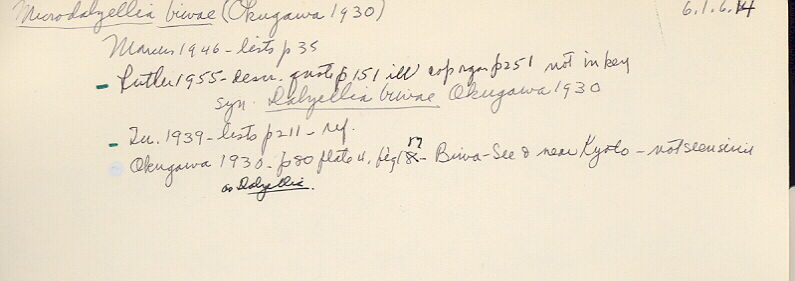 Microdalyellia biwae (Okugawa 1930) 6.1.6.14
Marcus 1946 - lists p 35
- Rutler 1955 - descr. quote p 151 ill cop organ p 251 not in key
syn. Dalyellia biwae Okugawa 1930
- Lu. 1939 - lists p 211 - ref.
Okugawa 1930 - p 80 plate 4, fig 17 - Biwa-See & near Kyoto - not seen since
as Dalyellia.